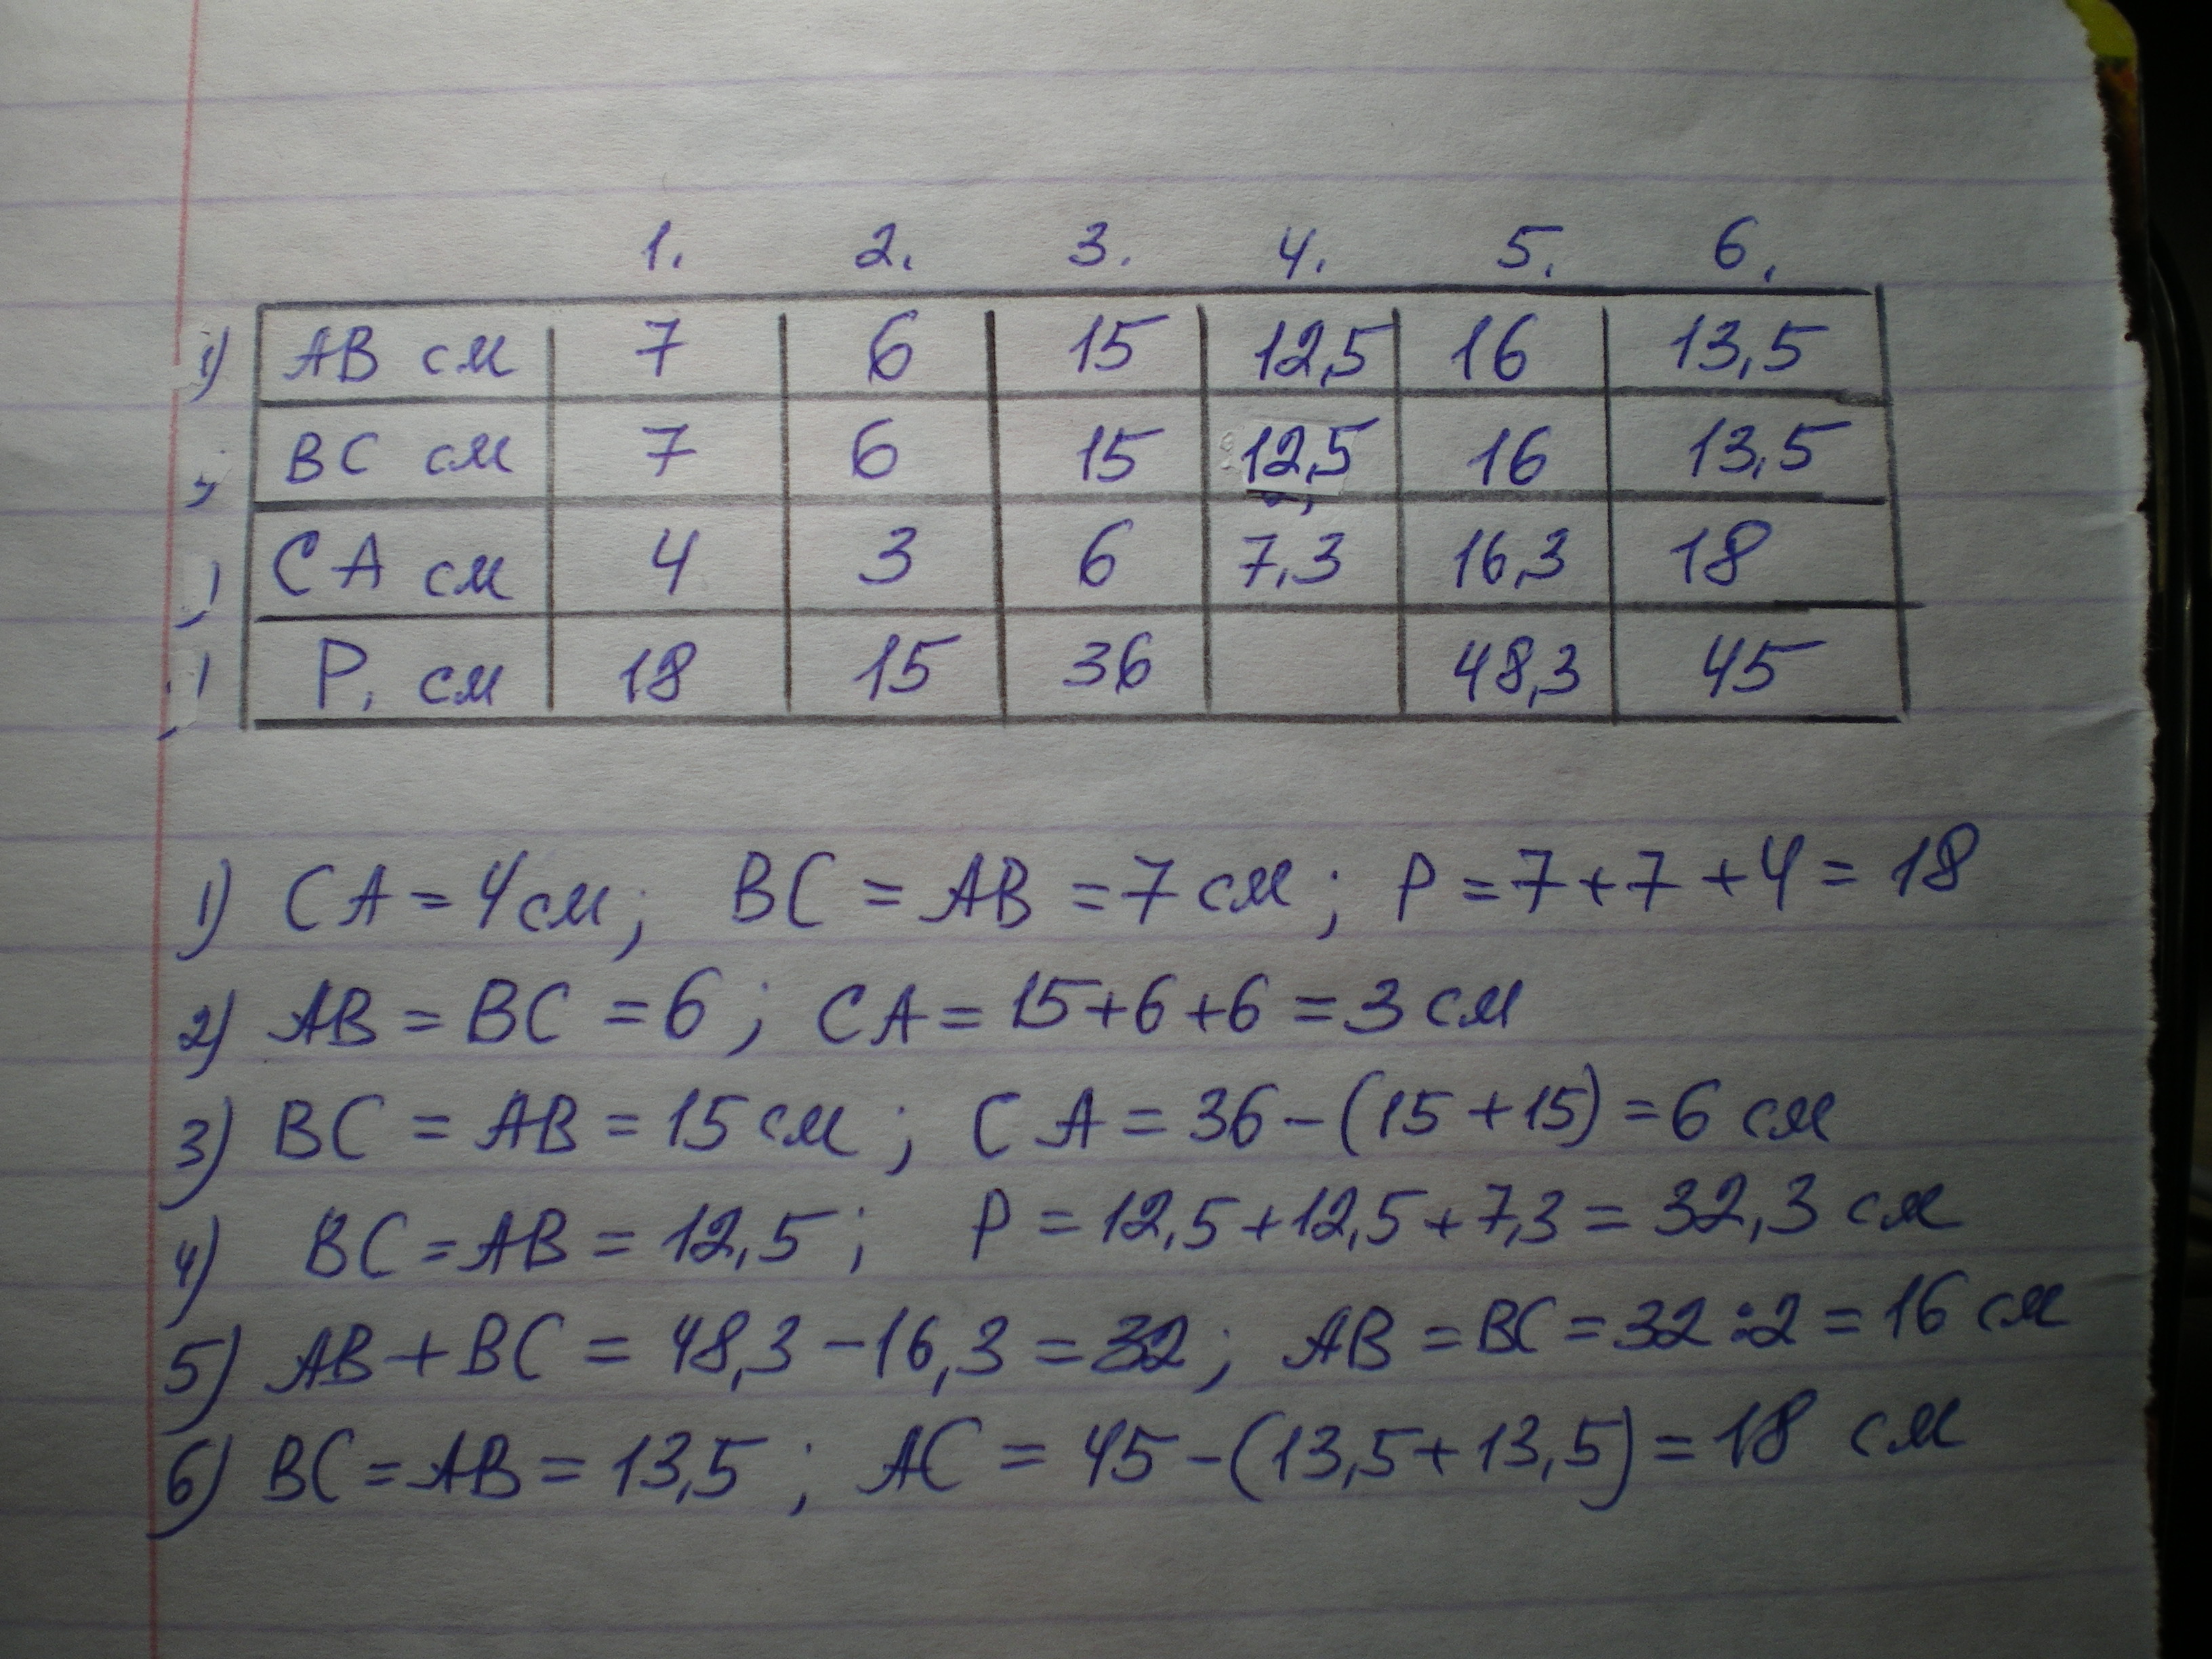 1. 2. 3. 4. 5. 6.
1) АВ см 7 6 15 12,5 16 13,5
ВС см 7 6 15 12,5 16 13,5
СА см 4 3 6 7,3 16,3 18
Р, см 18 15 36 48,3 45
1) СА = 4 см; ВС = АВ = 7 см; Р = 7 + 7 + 4 = 18
2) АВ = ВС = 6; СА = 15 + 6 + 6 = 3 см
3) ВС = АВ = 15 см; СА = 36 - (15 + 15) = 6 см
4) ВС = АВ = 12,5; Р = 12,5 + 12,5 + 7,3 = 32,3 см
5) АВ + ВС = 48,3 - 16,3 = 32; АВ = ВС = 32 : 2 = 16 см
6) ВС = АВ = 13,5; АС = 45 - (13,5 + 13,5) = 18 см